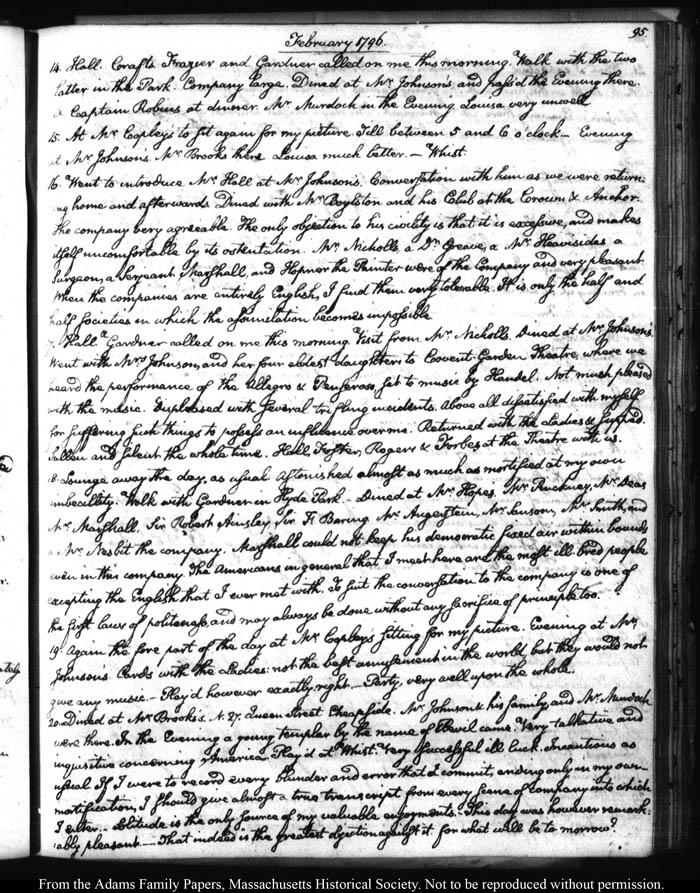 95.
February 1796.
14. Hall. Crafts Frazier and Gardner called on me this morning. Walk with the two
latter in the Park. Company large. Dined at Mr. Johnson's and pass'd the Evening there.
a Captain Robins at dinner. Mr. Murdoch in the Evening. Louisa very unwell
15. At Mr. Copley's to sit again for my picture. Till between 5 and 6 o'clock — Evening
at Mr. Johnsons. Mr. Brooks there Louisa much better. — Whist.
16. Went to introduce Mr. Hall at Mr. Johnson's. Conversation with him as we were return-
ing home and afterwards. Dined with Mr. Boylston and his Club at the Crown & Anchor.
The company very agreeable. The only objection to his civility is that it is excessive, and makes
itself uncomfortable by its ostentation. Mr. Nicholls, a Dr. Greave, a Mr. Heavisides a
Surgeon, a Serjeant Marshall, and Hopner the Painter were of the Company and very pleasant.
When the companies are entirely English, I find them very tolerable. It is only the half and
half Societies in which the assimilation becomes impossible.
Hall & Gardner called on me this morning. Visit from Mr. Nicholls. Dined at Mr. Johnson's.
Went with Mrs. Johnson, and her four eldest daughters to Covent Garden Theatre, where we
heard the performance of the Allegro & Penseroso, set to music by Handel. Not much pleased
with the music. Displeased with several trifling incidents. Above all dissatisfied with myself
for suffering such things to possess an influence over me. Returned with the Ladies & supped.
Sullen and silent the whole time. Hall, Foster, Rogers & Forbes at the Theatre with us.
18. Lounge away the day, as usual. Astonished almost as much as mortified at my own
imbecillity. Walk with Gardner in Hyde Park — Dined at Mr. Hope's. Mr. Pinckney, Mr. Deas
Mr. Marshall. Sir Robert Ainsley, Sir F. Baring Mr. Angerstein, Mr. Sansom, Mr. Smith, and
a Mr. Nesbit the company. Marshall could not keep his democratic fixed air within bounds
even in this company. The Americans in general that I meet here are the most ill-bred people
excepting the English that I ever met with. To suit the conversation to the company is one of
the first laws of politeness, and may always be done without any sacrifice of principle too.
19. Again the fore part of the day at Mr. Copley's sitting for my picture. Evening at Mr.
Johnson's. Cards with the Ladies: not the best amusement in the world but they would not
give any music. — Play'd however exactly right. — Party, very well upon the whole.
20. Dined at Mr. Brooks's. N. 27. Queen Street Cheapside. Mr. Johnson & his family, and Mr. Murdoch
were there. In the Evening a young templer by the name of Bevil came. Very talkative and
inquisitive concerning America. Play'd at Whist. Very successful ill luck. Incautious as
usual. If I were to record every blunder and error that I commit, ending only in my own
mortification, I should give almost a true transcript from every scene of company into which
I enter. — Solitude is the only source of my valuable enjoyments. This day was however remark-
ably pleasant. — That indeed is the greatest objection against it for what will be to morrow?
From the Adams Family Papers, Massachusetts Historical Society. Not to be reproduced without permission.